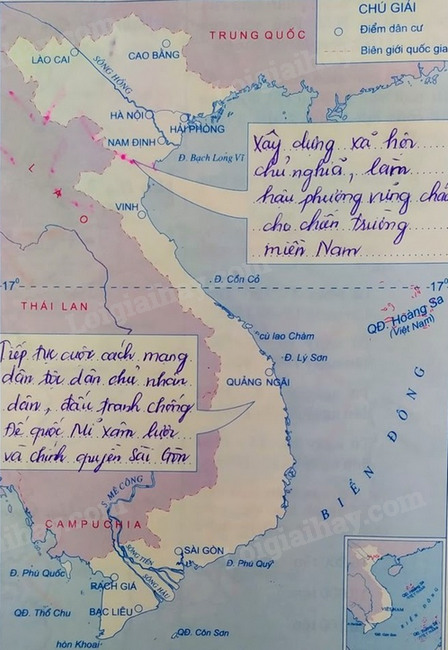 CHÚ GIẢI
Điểm dân cư
Biên giới quốc gia
TRUNG QUỐC
CAO BẰNG
LÀO CAI
SÔNG HỒNG
HÀ NỘI
HẢI PHÒNG
NAM ĐỊNH
Đ. Bạch Long Vĩ
Xây dựng xã hội
chủ nghĩa, làm
hậu phương vững chắc
cho chiến trường
miền Nam
L
VINH
O
17°
17°
Đ. Cồn Cỏ
THÁI LAN
QĐ. Hoàng Sa
(Việt Nam)
cù lao Chàm
Đ. Lý Sơn
QUẢNG NGÃI
Tiếp tục cuộc cách mạng
dân tộc dân chủ nhân
dân, đấu tranh chống
Đế quốc Mĩ xâm lược
và chính quyền Sài Gòn
BIỂN ĐÔNG
MÊ CÔNG
CAMPUCHIA
SÀI GÒN
SÔNG TIỀN
SÔNG HẬU
Đ. Phú Quốc
Đ. Phú Quý
RẠCH GIÁ
QĐ. Thổ Chu
BẠC LIÊU
QĐ. Côn Sơn
hòn Khoai
VIỆT NAM
BIỂN ĐÔNG
loigiaihay.com